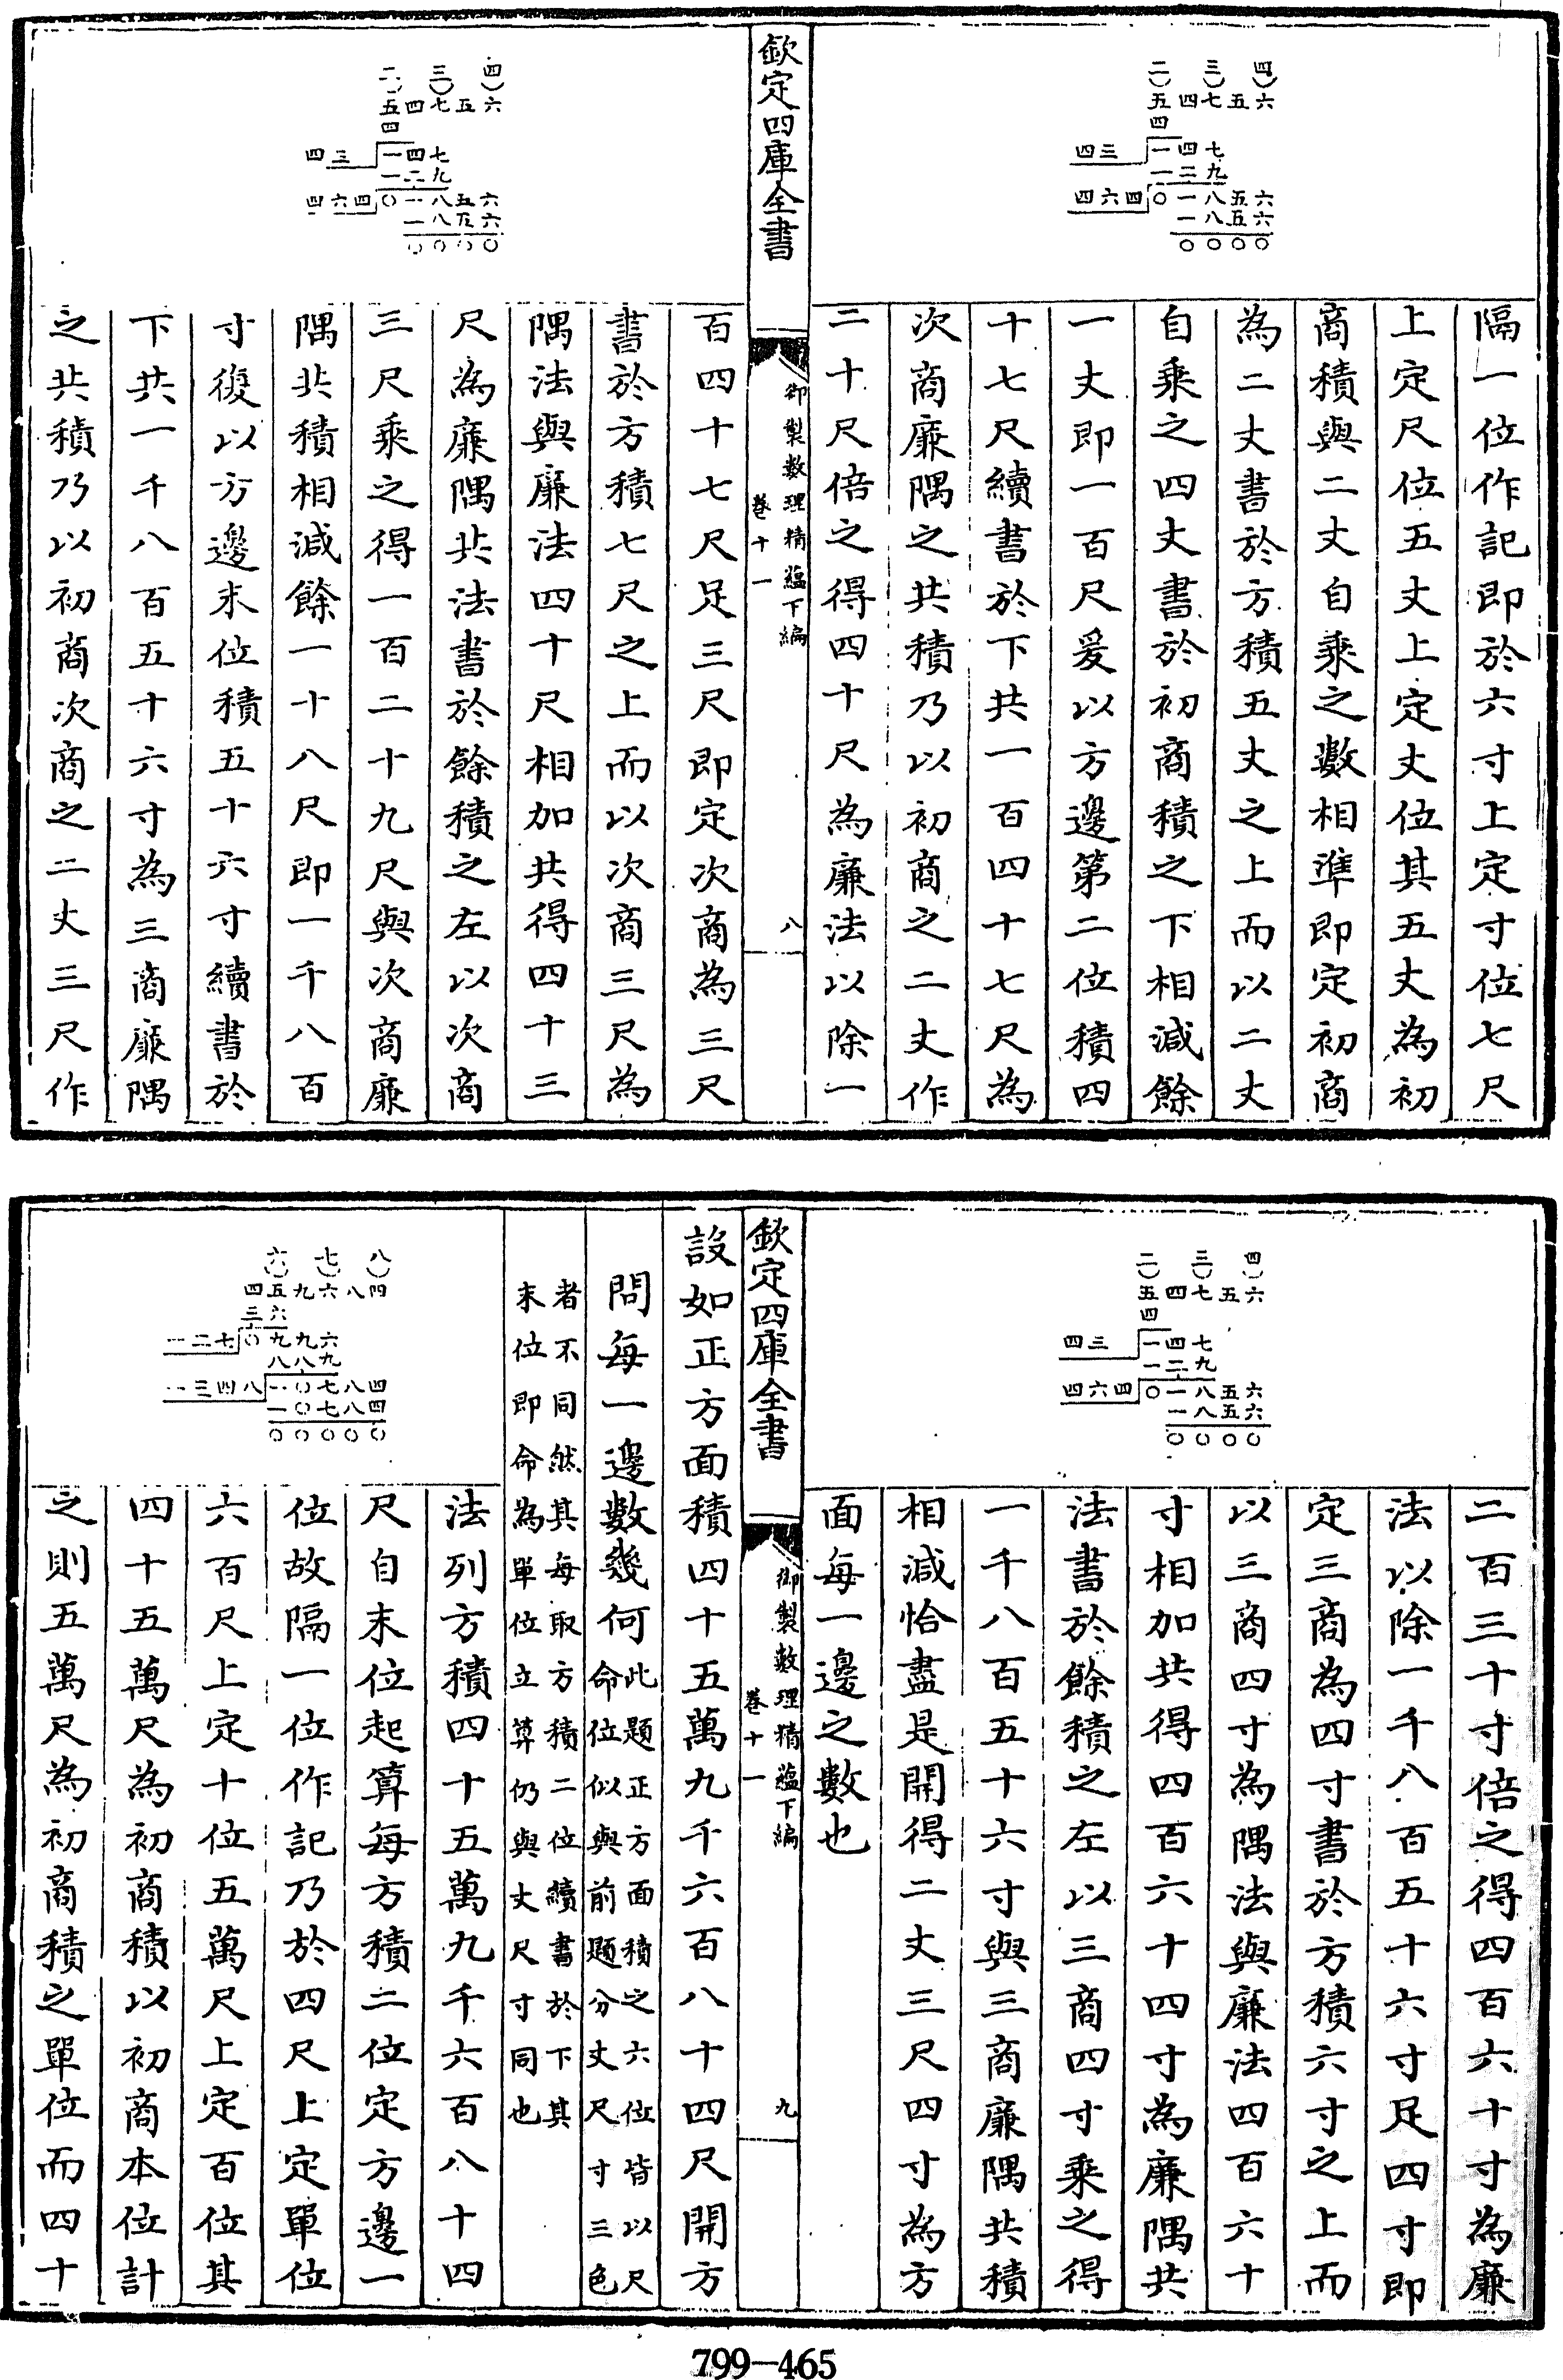 二 三 四
五四七五六
四
四三 一四七
一二九
四六四 〇一八五六
一八五六
〇〇〇〇
隔一位作記即於六寸上定寸位七尺
上定尺位五丈上定丈位其五丈為初
商積與二丈自乘之數相準即定初商
為二丈書於方積五丈之上而以二丈
自乘之四丈書於初商積之下相減餘
一丈即一百尺爰以方邊第二位積四
十七尺續書於下共一百四十七尺為
次商廉隅之共積乃以初商之二丈作
二十尺倍之得四十尺為廉法以除一
欽定四庫全書
御製數理精蘊下編
卷十一
八
二 三 四
五四七五六
四
四三 一四七
一二九
四六四 〇一八五六
一八五六
〇〇〇〇
百四十七尺足三尺即定次商為三尺
書於方積七尺之上而以次商三尺為
隅法與廉法四十尺相加共得四十三
尺為廉隅共法書於餘積之左以次商
三尺乘之得一百二十九尺與次商廉
隅共積相減餘一十八尺即一千八百
寸復以方邊末位積五十六寸續書於
下共一千八百五十六寸為三商廉隅
之共積乃以初商次商之二丈三尺作
二 三 四
五四七五六
四
四三 一四七
一二九
四六四 〇一八五六
一八五六
〇〇〇〇
二百三十寸倍之得四百六十寸為廉
法以除一千八百五十六寸足四寸即
定三商為四寸書於方積六寸之上而
以三商四寸為隅法與廉法四百六十
寸相加共得四百六十四寸為廉隅共
法書於餘積之左以三商四寸乘之得
一千八百五十六寸與三商廉隅共積
相減恰盡是開得二丈三尺四寸為方
面每一邊之數也
欽定四庫全書
御製數理精蘊下編
卷十一
九
設如正方面積四十五萬九千六百八十四尺開方
問每一邊數幾何
此題正方面積之六位皆以尺
命位似與前題分丈尺寸三色
者不同然其每取方積二位續書於下其
末位即命為單位立算仍與丈尺寸同也
六 七 八
四五九六八四
三六
一二七 〇九九六
八八九
一三四八 一〇七八四
一〇七八四
〇〇〇〇〇
法列方積四十五萬九千六百八十四
尺自末位起算每方積二位定方邊一
位故隔一位作記乃於四尺上定單位
六百尺上定十位五萬尺上定百位其
四十五萬尺為初商積以初商本位計
之則五萬尺為初商積之單位而四十
799-465